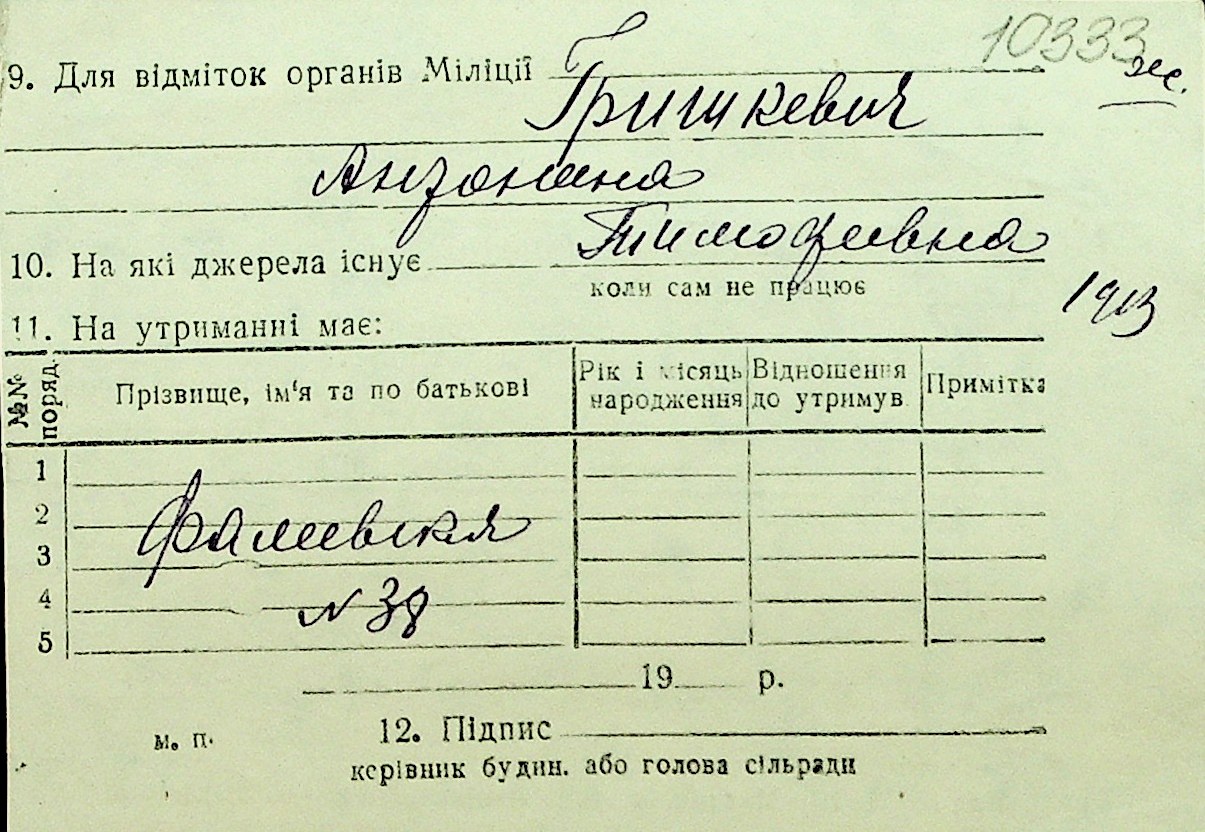 10333
9. Для відміток органів Міліції
же.
Гришкевич
Антонина
Тимофеивна
10. На які джерела існує
коли сам не працює
1913
11. На утриманні має:
№№ поряд. Прізвище, ім'я та по батькові Рік і місяць народження Відношення до утримув. Примітка
1
2
Фалеевская
3
4
N 38
5
19 р.
м. п. 12. Підпис
керівник будин. або голова сільради